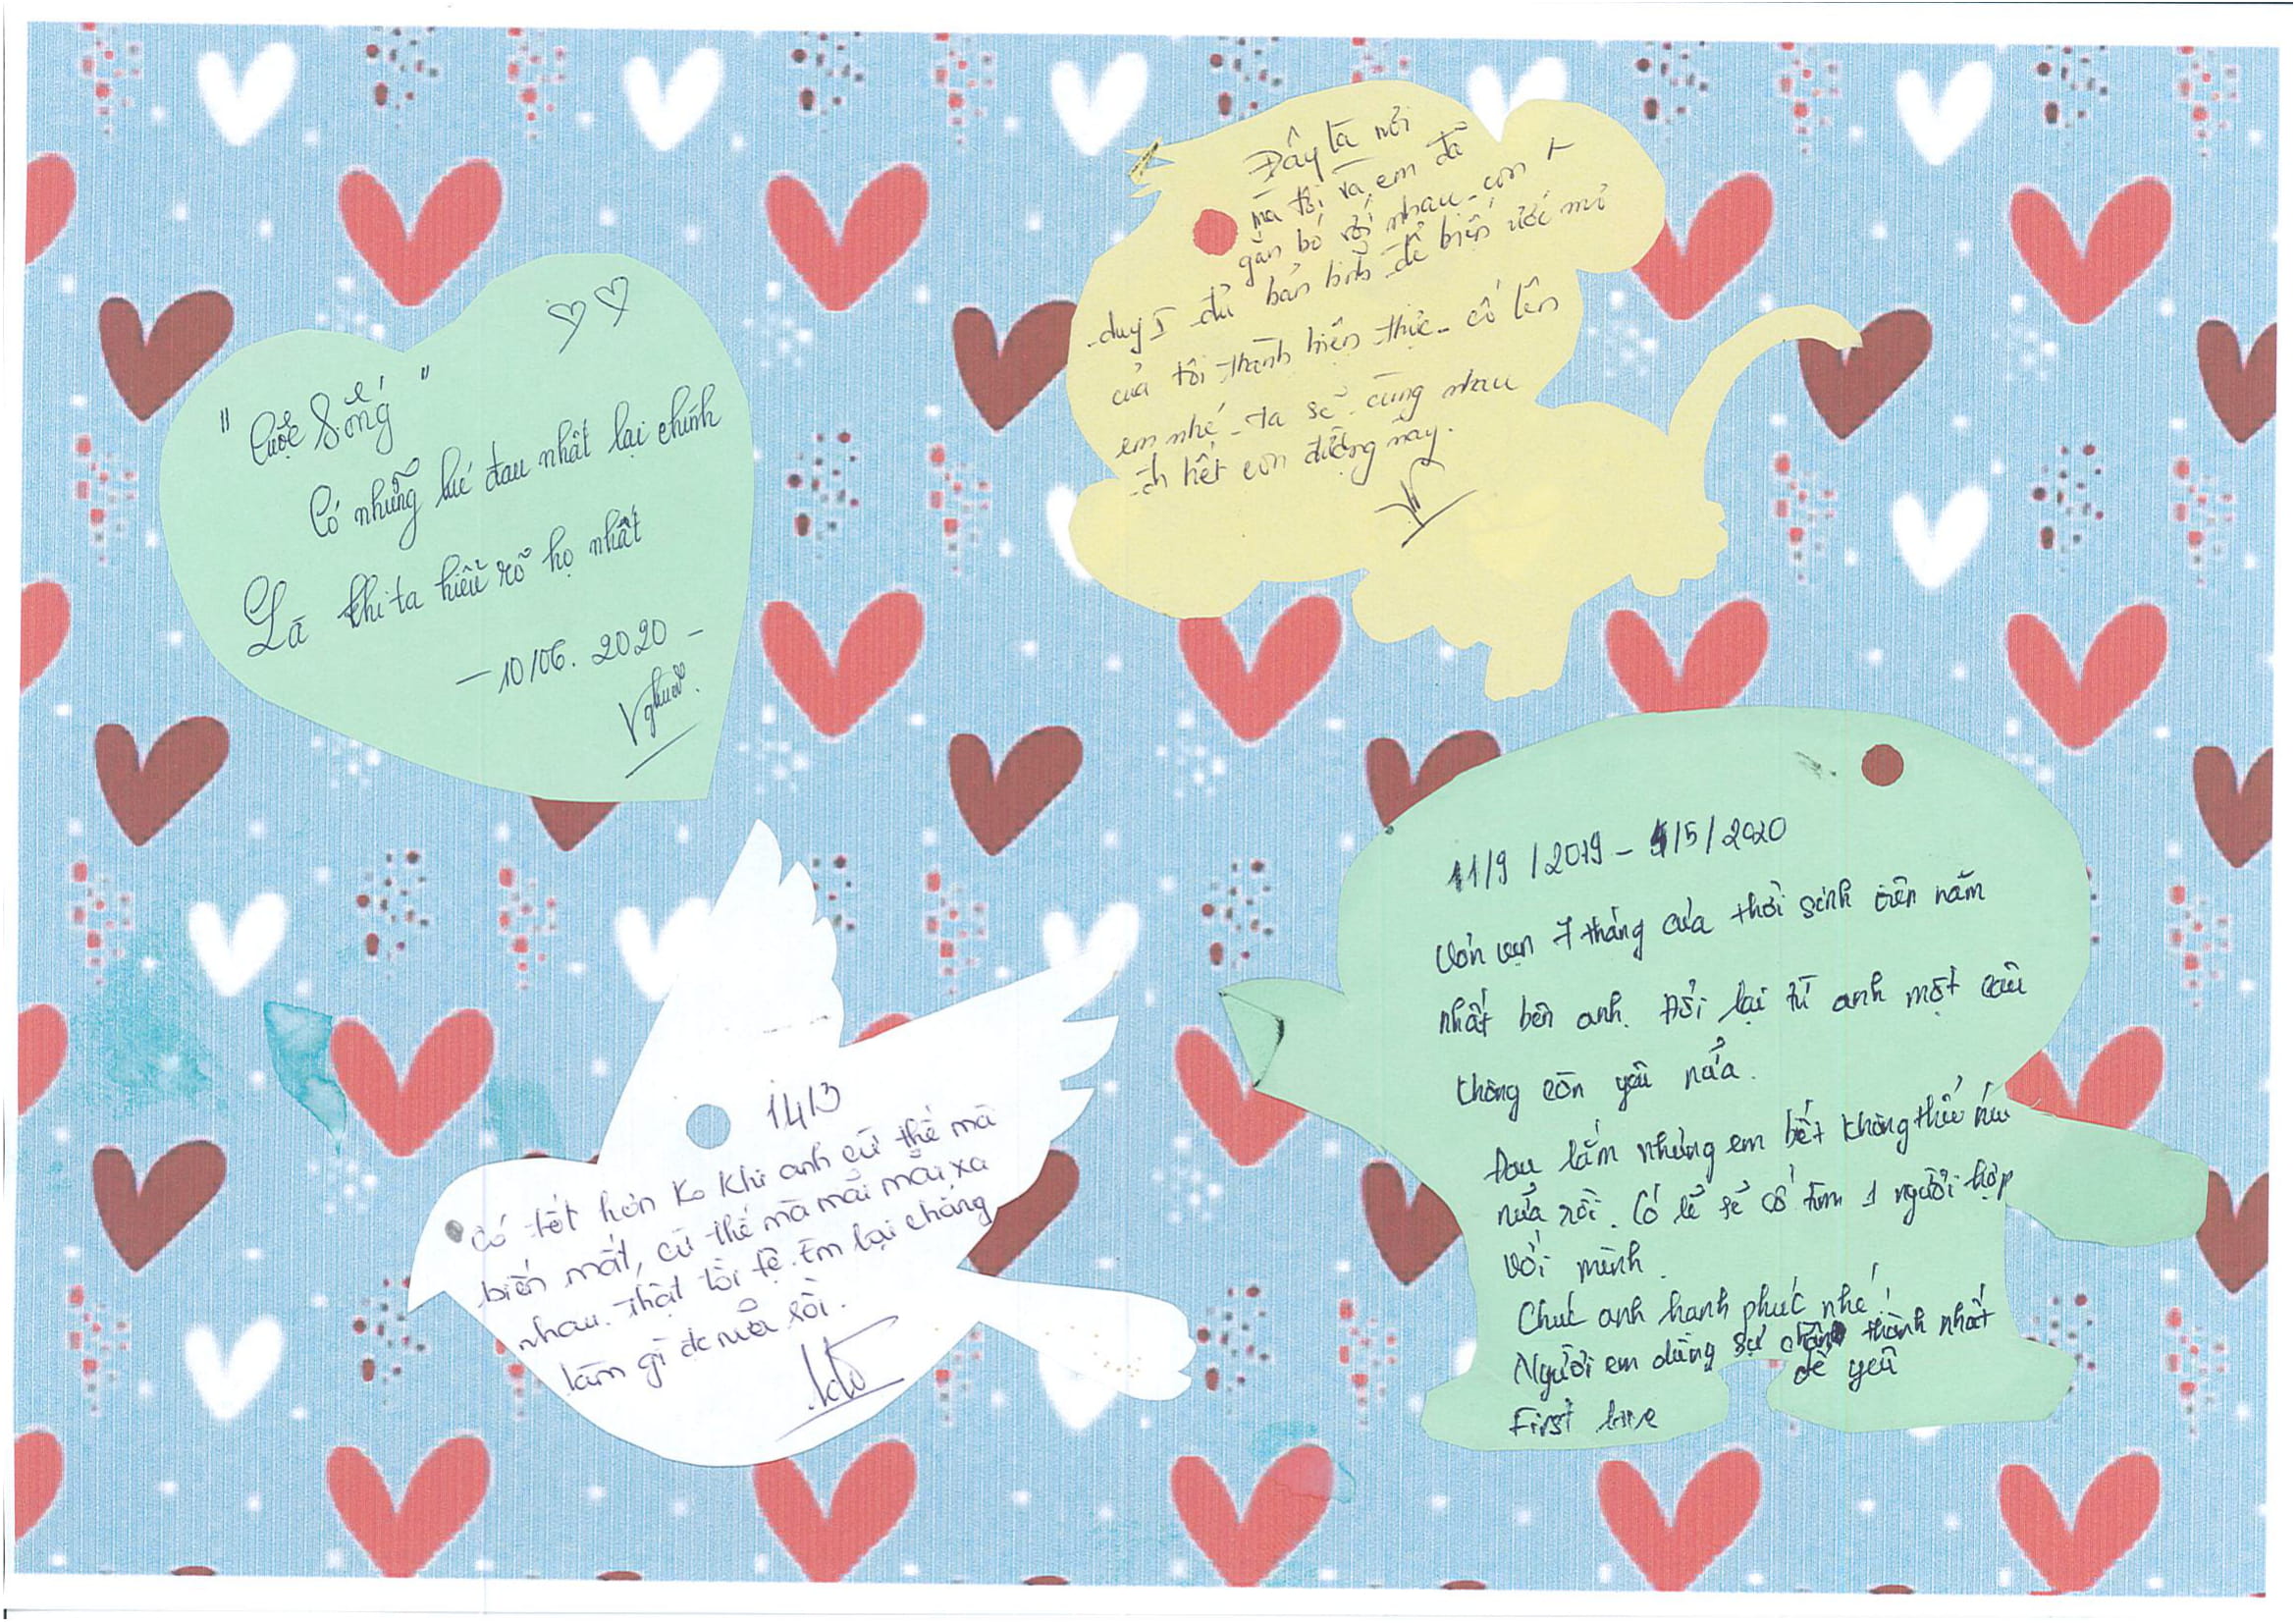 "Cuộc Sống"
Có những lúc đau nhất lại chính
Là khi ta hiểu rõ họ nhất
- 10/06. 2020 -
Đây là nơi
mà tôi và em đã
gắn bó với nhau. còn t
duy I đủ bản lĩnh để biến ước mơ
của tôi thành hiện thực. cố lên
em nhé. ta sẽ cùng nhau
đi hết con đường này.
14/3
Có tốt hơn ko khi anh cứ thế mà
biến mất, cứ thế mà mãi mãi xa
nhau. Thật tồi tệ. Em lại chẳng
làm gì đc nữa rồi.
11/9/2019 - 4/5/2020
Vỏn vẹn 7 tháng của thời sinh viên năm
nhất bên anh. Đổi lại từ anh một câu
không còn yêu nửa.
Đau lắm nhưng em biết không thể níu
nửa rồi. Có lẽ sẽ cố tìm 1 người hợp
với mình.
Chúc anh hạnh phúc nhé!
Người em dùng sự chân thành nhất
để yêu
First love